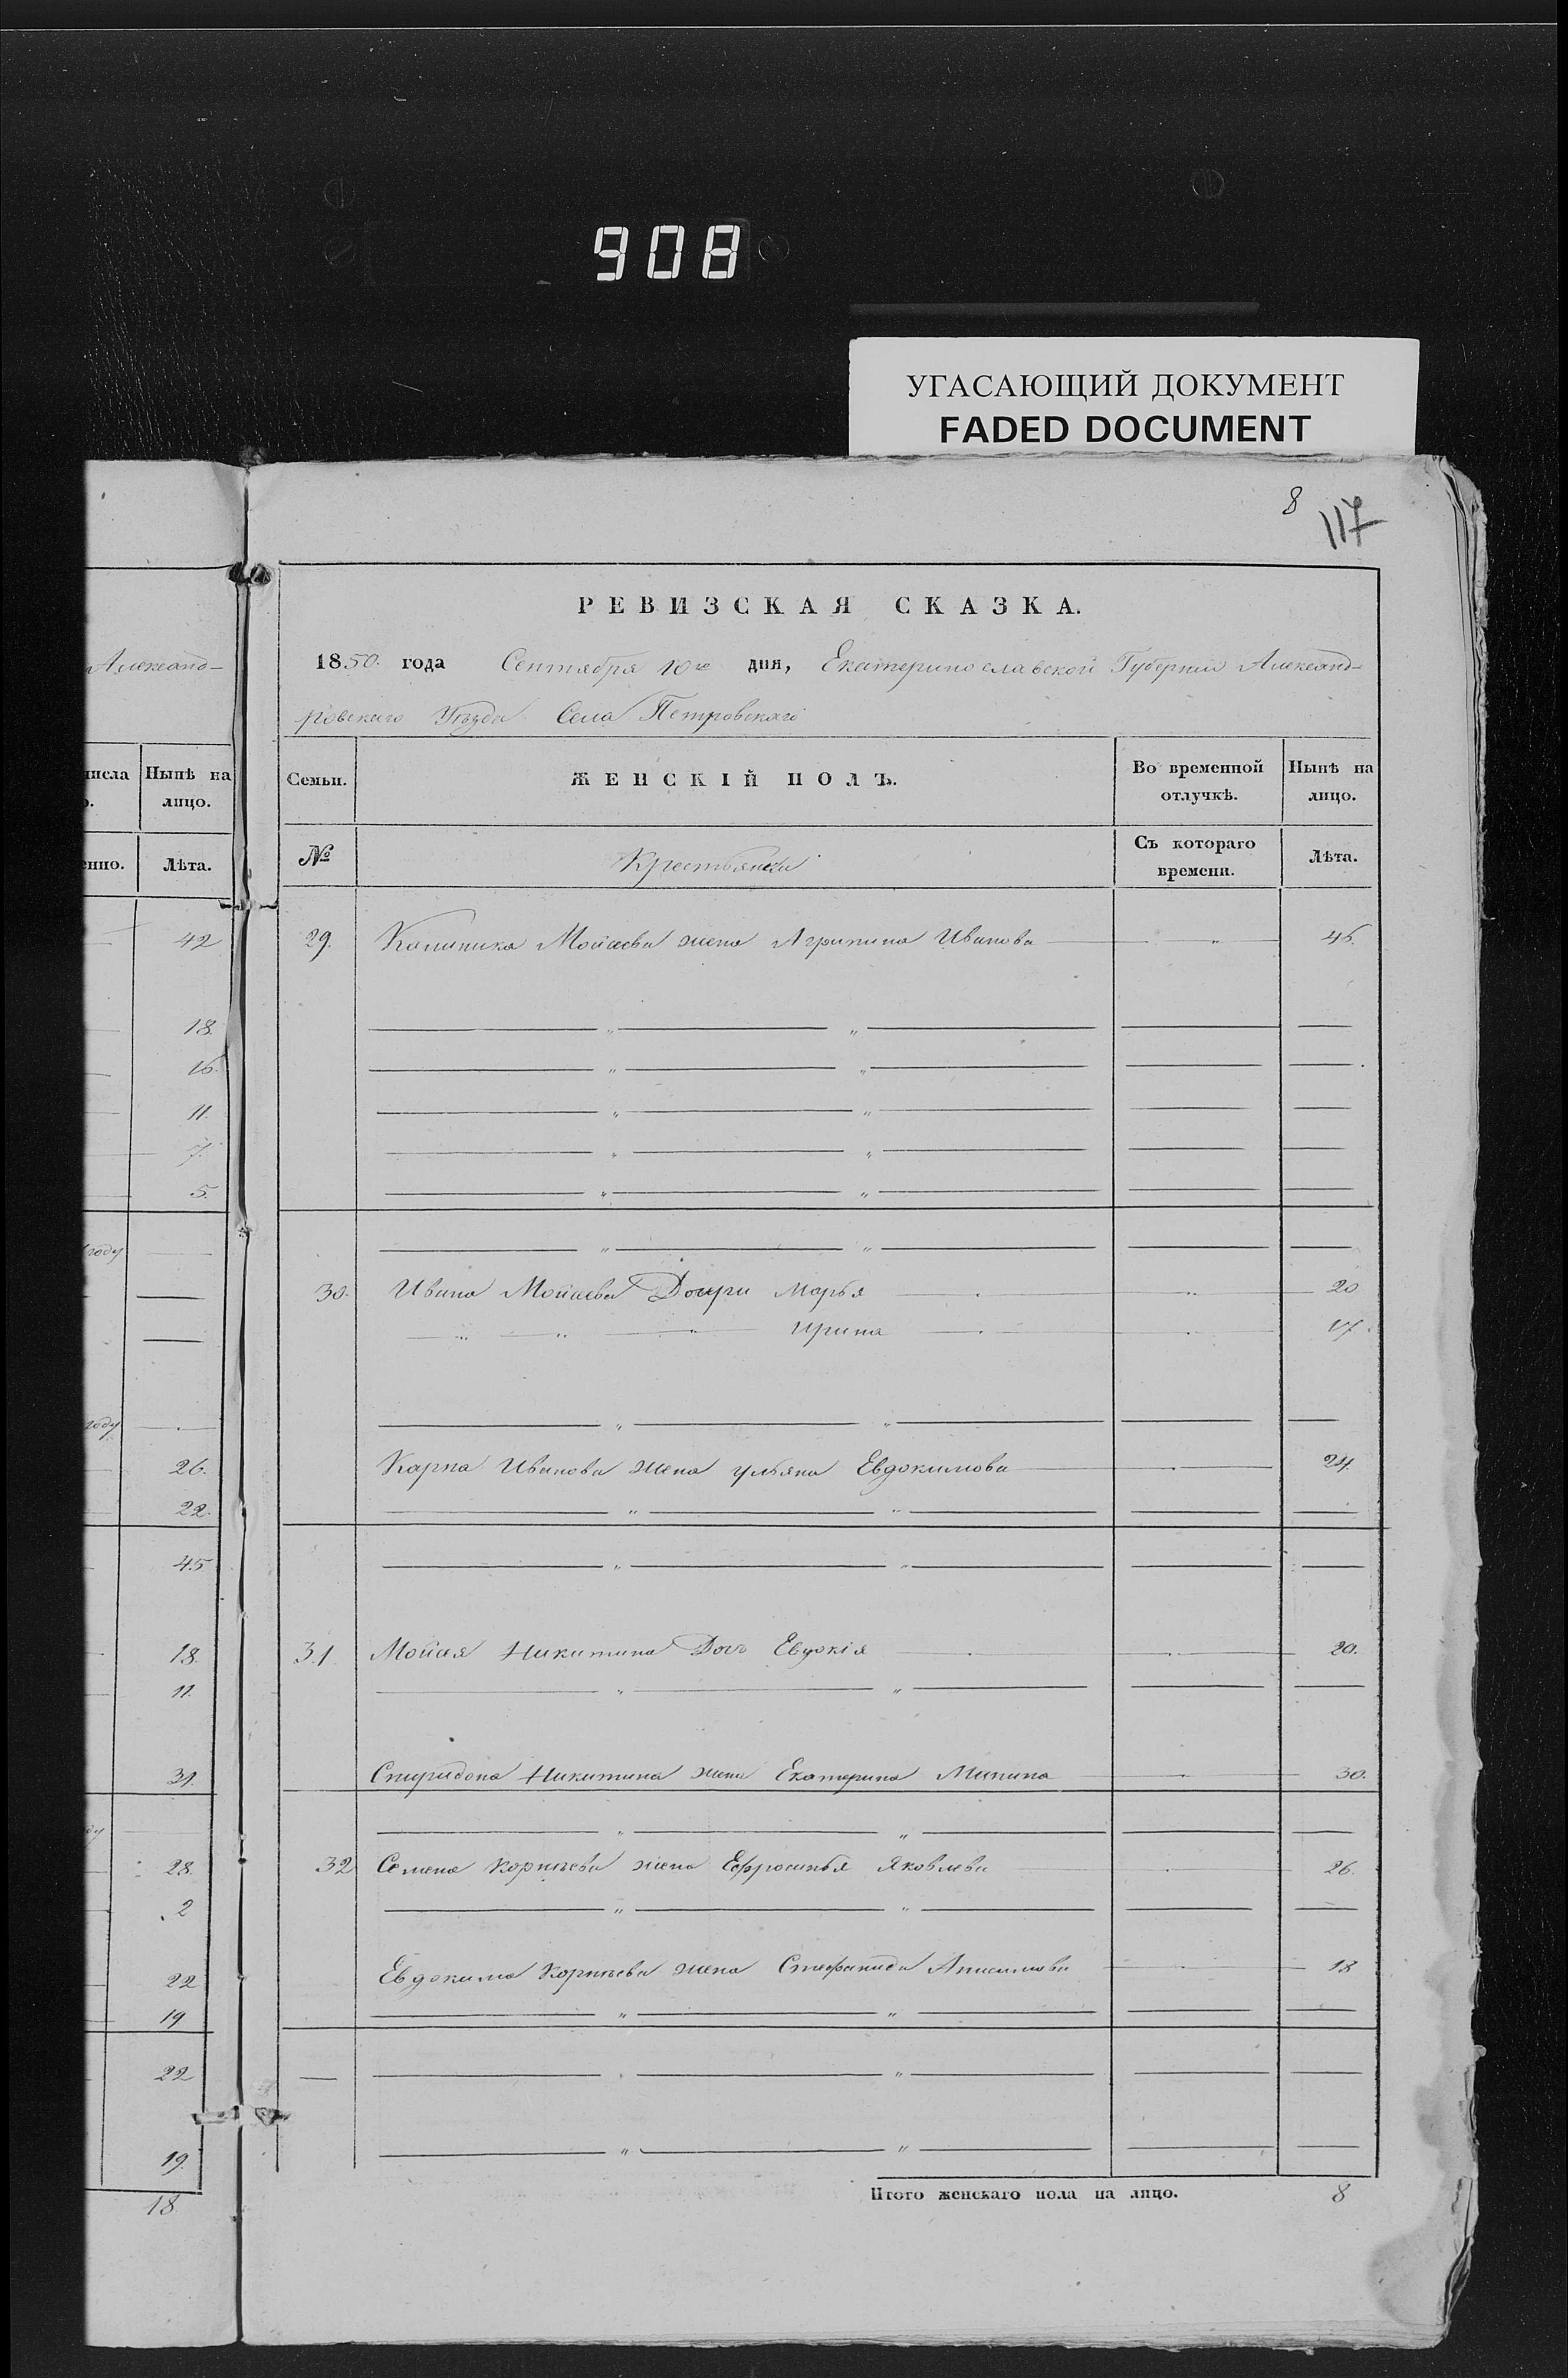 908
УГАСАЮЩИЙ ДОКУМЕНТ
FADED DOCUMENT
8
117
Александ-
исла
Нынѣ на
лицо.
енно.
Лѣта.
42
18.
16.
11.
7.
5.
году
году
26.
22.
45
18.
11.
31.
ду
28.
2
22
19
22
19.
18
РЕВИЗСКАЯ СКАЗКА.
1850. года Сентября 10го дня, Екатеринославской Губернии Александ-
ровскаго Уѣзда Села Петровскаго
Семьи.
ЖЕНСКІЙ ПОЛЪ.
Во временной
отлучкѣ.
Нынѣ на
лицо.
№
Крестьянки
Съ котораго
времени.
Лѣта.
29. Калиника Мойсева жена Агрипина Иванова 45.
30. Ивана Мойсева Дочери Марья 20
" " " Ирина 17.
Карпа Иванова жена ульяна Евдокимова 24.
31 Мойсея Никитина Дочь Евдокія 20.
Спиридона Никитина жена Екатерина Минина 30.
32 Семена Корнѣева жена Ефросинья Яковлева 26.
Евдокима Корнѣева жена Стефанида Анисимова 18
Итого женскаго пола на лицо. 8